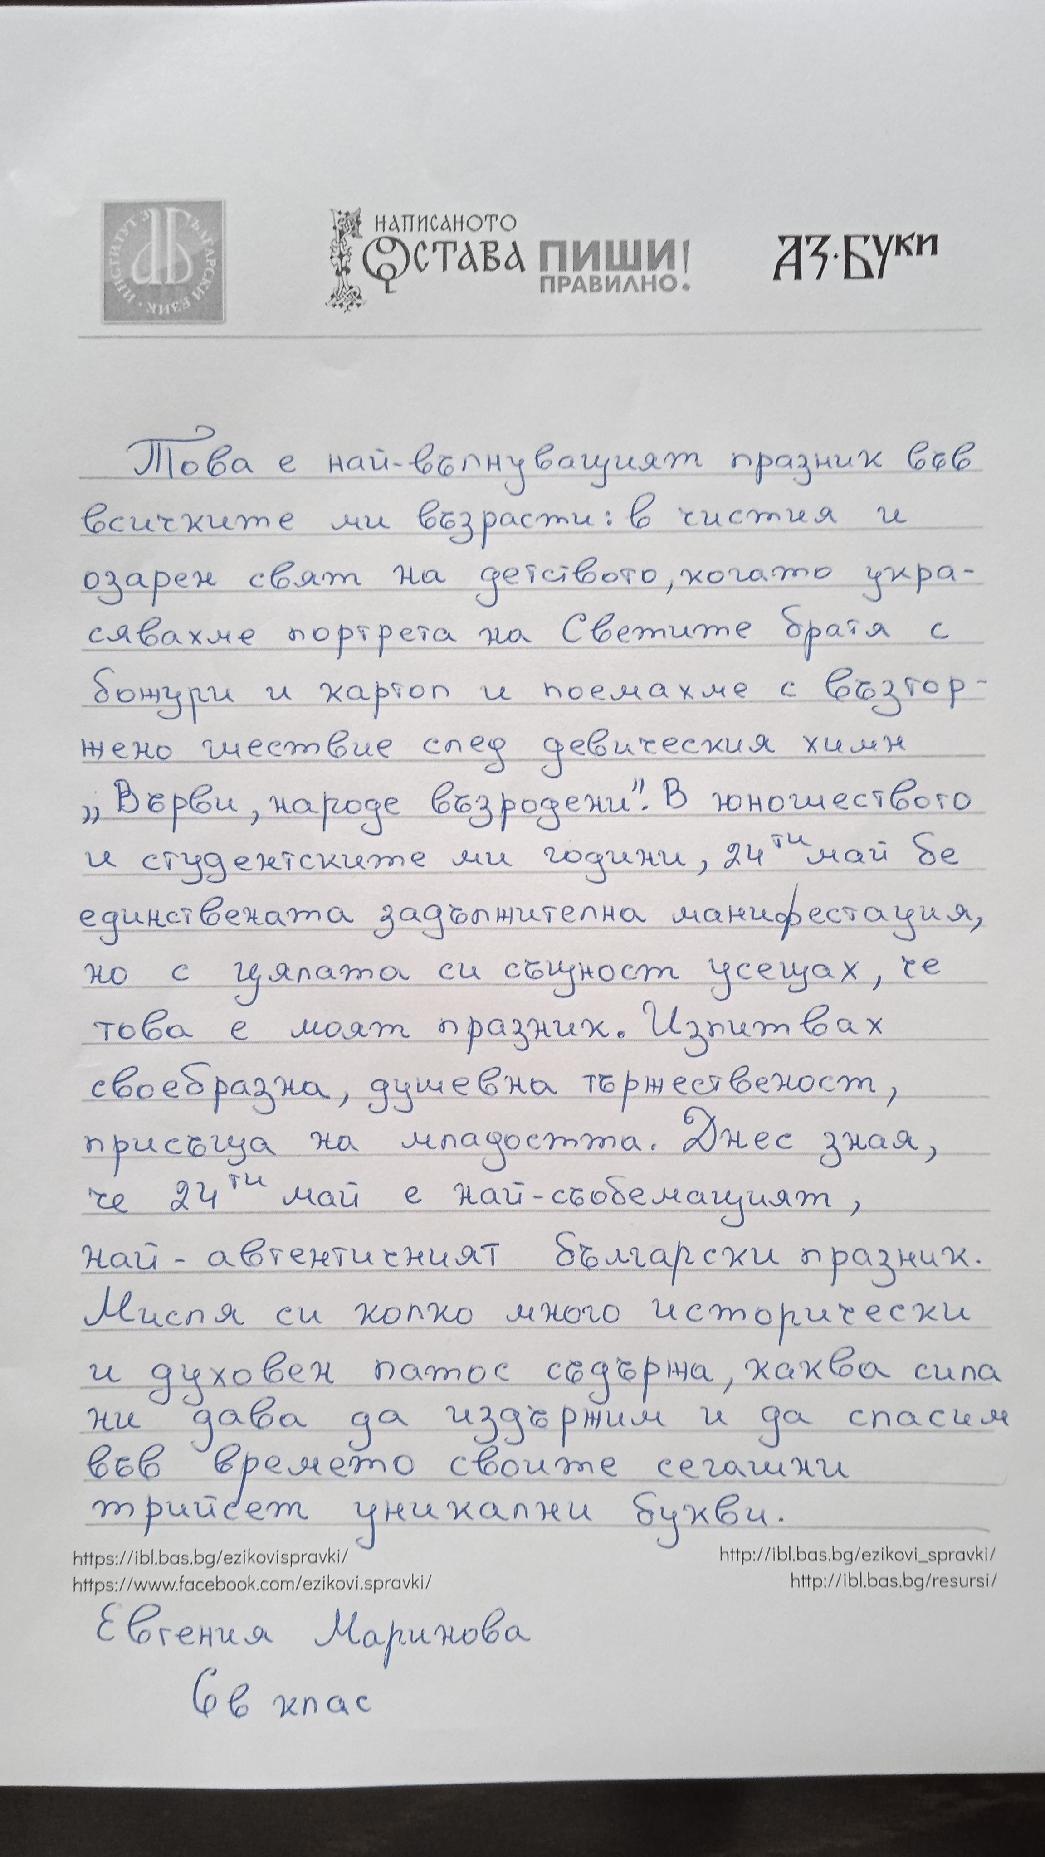 ИНСТИТУТ ЗА БЪЛГАРСКИ ЕЗИК
НАПИСАНОТО
ОСТАВА
ПИШИ
ПРАВИЛНО!
АЗ·БУКИ
Това е най-вълнуващият празник във
всичките ми възрасти: в чистия и
озарен свят на детството, когато укра-
сявахме портрета на Светите братя с
божури и картоп и поемахме с възтор-
жено шествие след девическия химн
„Върви, народе възродени". В юношеството
и студентските ми години, 24ти май бе
единствената задължителна манифестация,
но с цялата си същност усещах, че
това е моят празник. Изпитвах
своебразна, душевна тържественост,
присъща на младостта. Днес зная,
че 24ти май е най-събемащият,
най-автентичният български празник.
Мисля си колко много исторически
и духовен патос съдържа, каква сила
ни дава да издържим и да спасим
във времето своите сегашни
трийсет уникални букви.
https://ibl.bas.bg/ezikovispravki/
http://ibl.bas.bg/ezikovi_spravki/
https://www.facebook.com/ezikovi.spravki/
http://ibl.bas.bg/resursi/
Евгения Маринова
6в клас